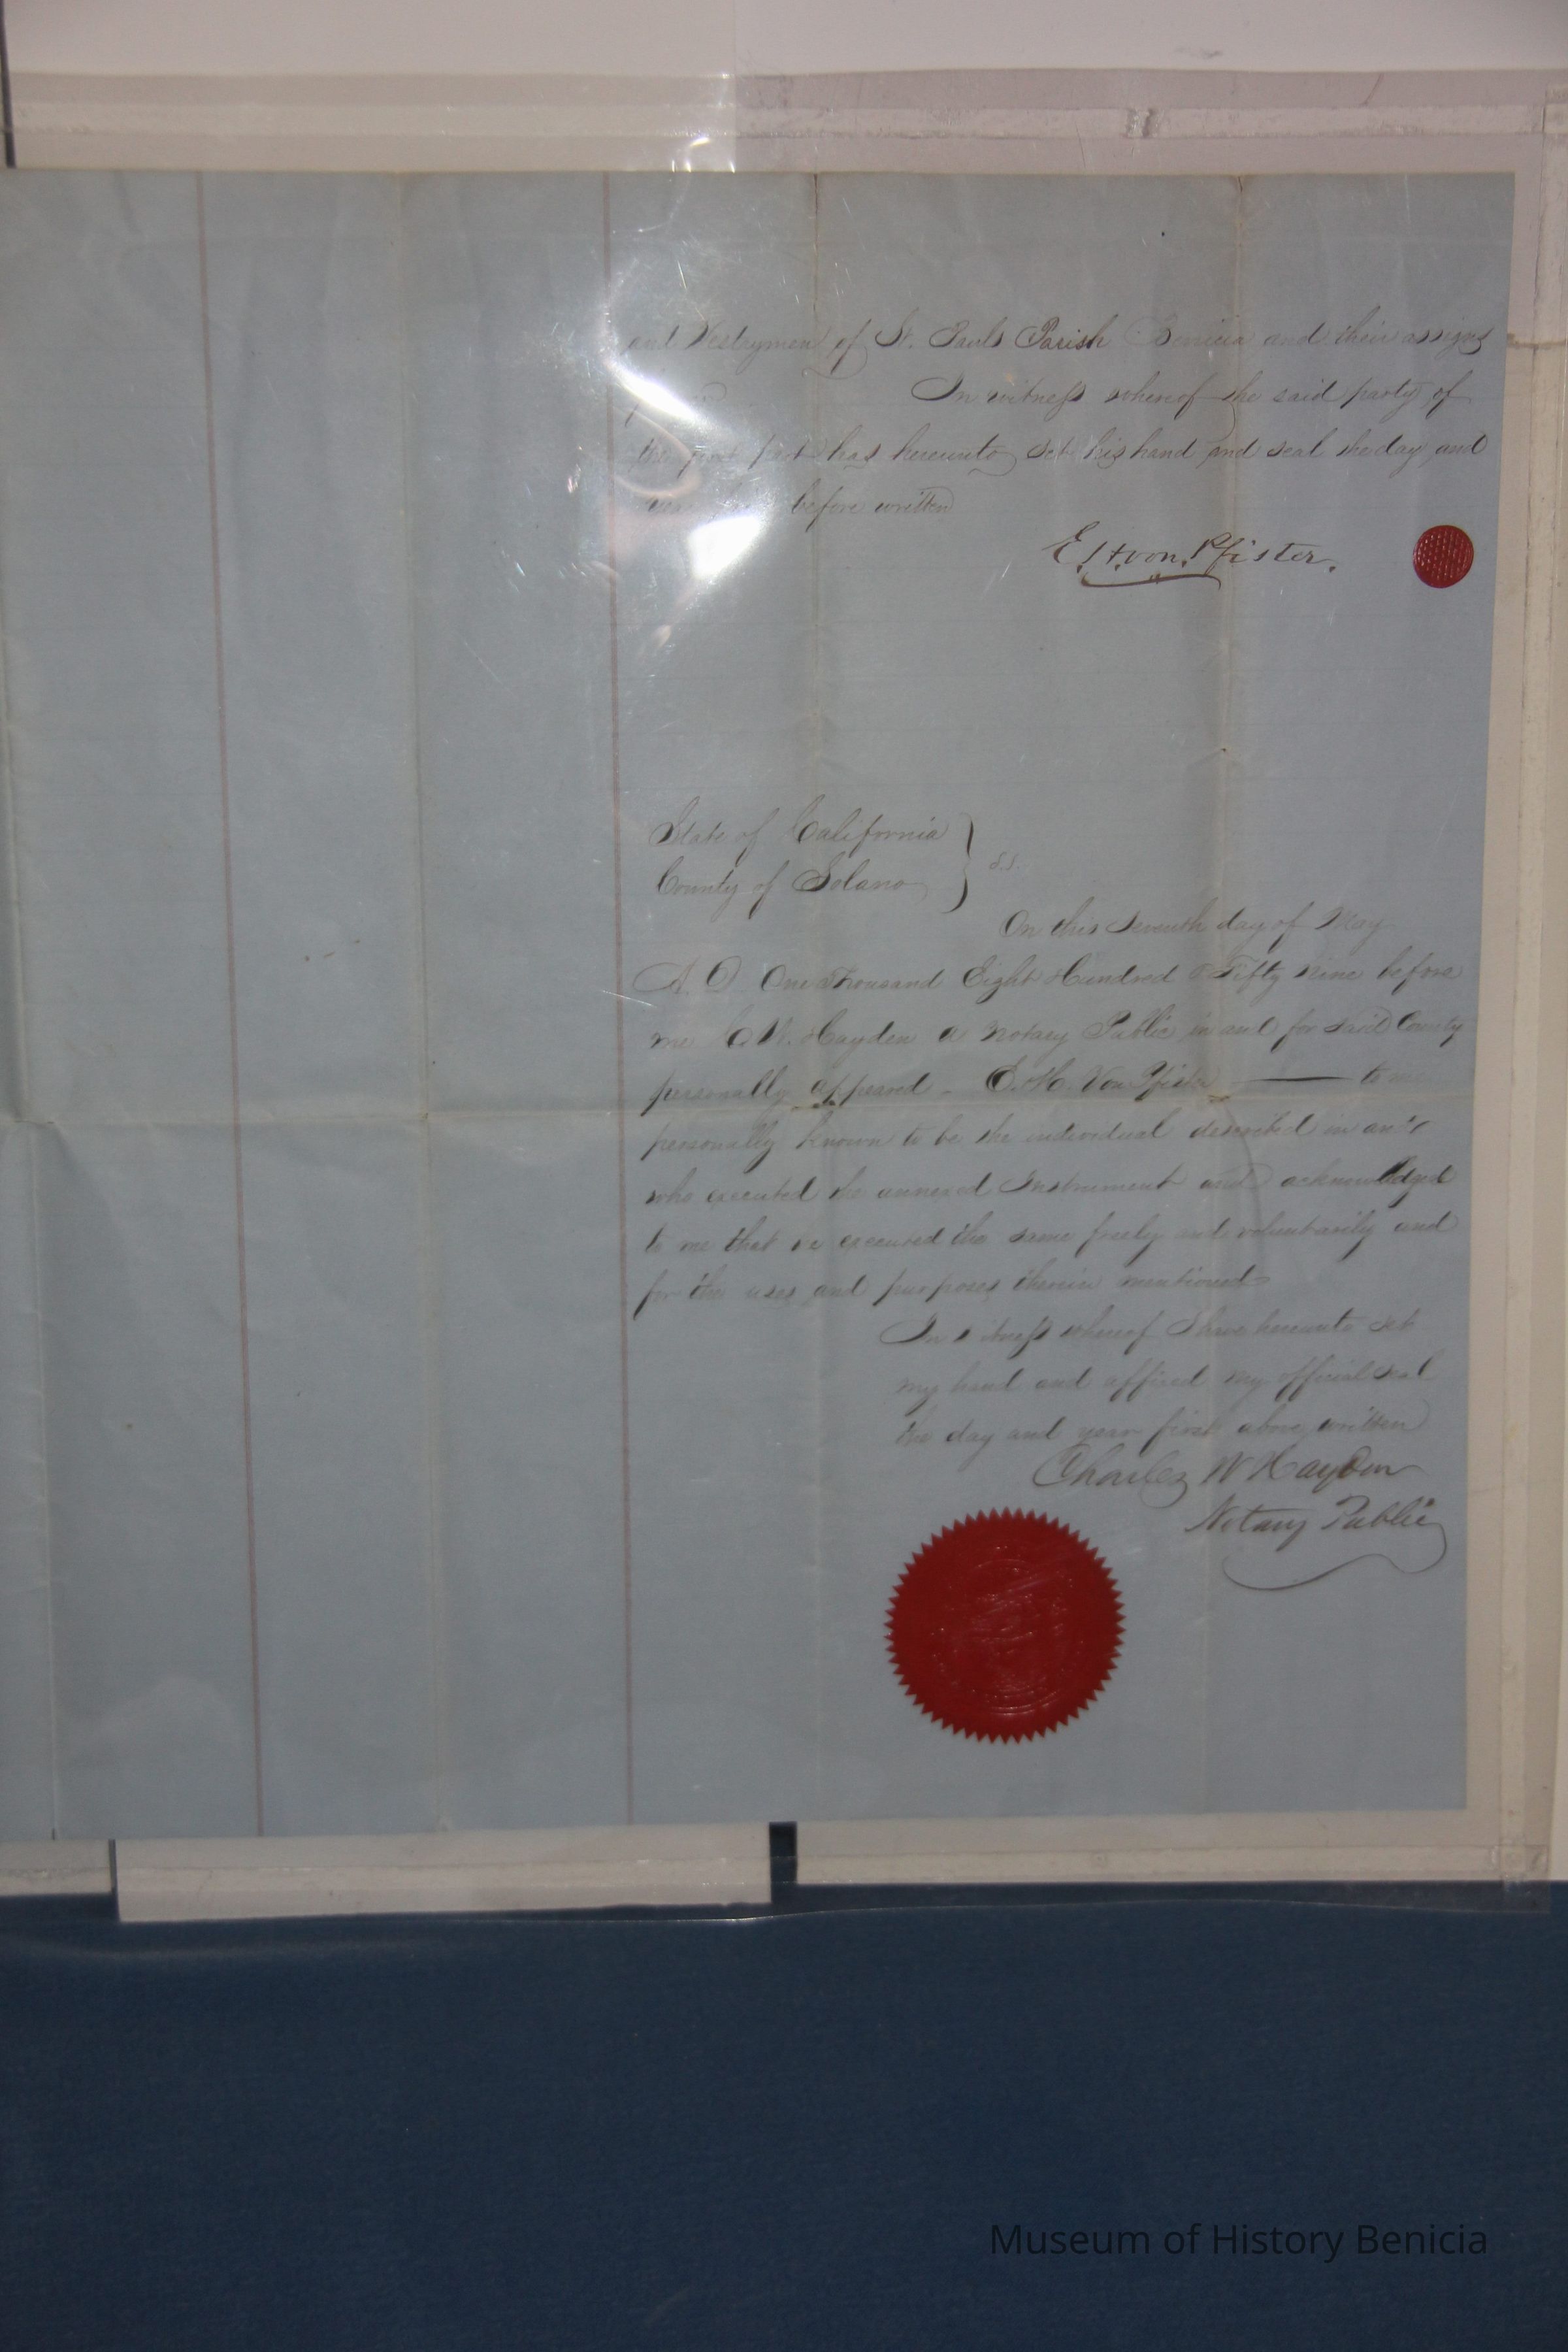 and Vestrymen of St. Pauls Parish Benicia and their assigns
In witness whereof the said party of
the first part has hereunto set his hand and seal the day and
year before written
E. H. von Pfister.
State of California
County of Solano } S.S.
On this Seventh day of May
A. D. One Thousand Eight Hundred & Fifty nine before
me C. W. Hayden a Notary Public in and for said County
personally appeared - E. H. Von Pfister — to me
personally known to be the individual described in and
who executed the annexed Instrument and acknowledged
to me that he executed the same freely and voluntarily and
for the uses and purposes therein mentioned
In witness whereof I have hereunto set
my hand and affixed my official seal
the day and year first above written
Charles W Hayden
Notary Public
Museum of History Benicia